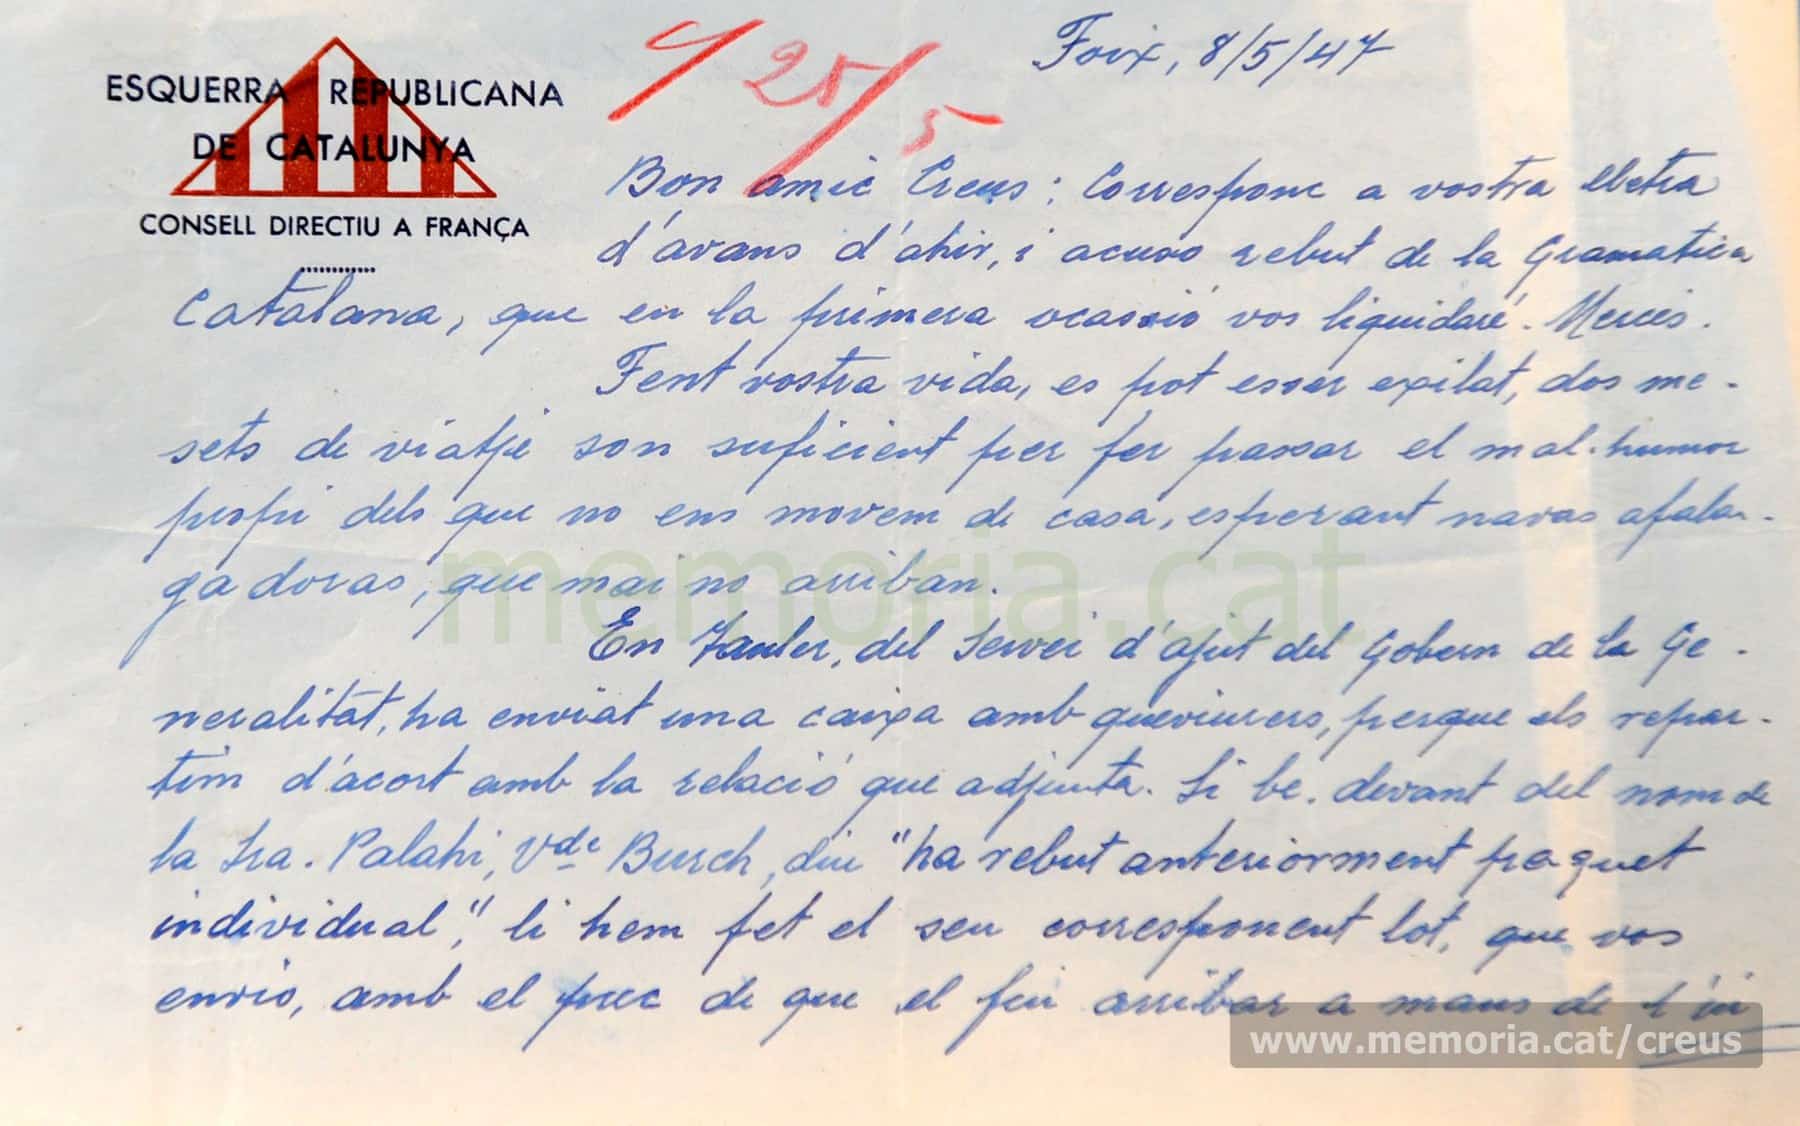 ESQUERRA REPUBLICANA
DE CATALUNYA
CONSELL DIRECTIU A FRANÇA
25/5
Foix, 8/5/47
Bon amic Creus: Corresponc a vostra lletra
d'avans d'ahir, i acuso rebut de la Gramatica
Catalana, que en la primera ocassió vos liquidaré. Mercès.
Fent vostra vida, es pot esser exilat, dos me-
sets de viatje son suficient per fer passar el mal-humor
propi dels que no ens movem de casa, esperant novas afala-
gadoras, que mai no arriban.
En Tauler, del Servei d'ajut del Gobern de la Ge-
neralitat, ha enviat una caixa amb queviures, perque els repar-
tim d'acort amb la relació que adjunta. Si be, devant del nom de
la Sra. Palahi, Vde Burch, diu "ha rebut anteriorment paquet
individual", li hem fet el seu corresponent lot, que vos
envio, amb el prec de que el feu arribar a mans de l'in
memoria.cat
www.memoria.cat/creus